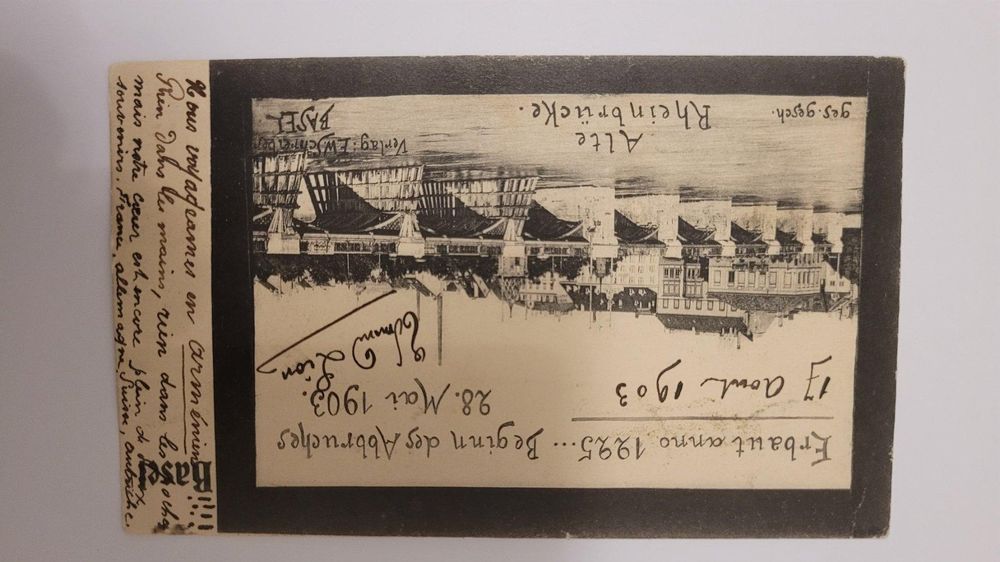 Erbaut anno 1225... Beginn des Abbruches
28. Mai 1903.
17 Aout 1903
Léon
Alte
Rheinbrücke.
ges. gesch.
Verlag: E.W. Schreiber
BASEL
Basel
Nous voyageames en arméniens!!!!
Rien dans les mains, rien dans les poches
mais notre cœur est encore plein de doux
souvenirs. France, allemagne, Suisse, autriche.